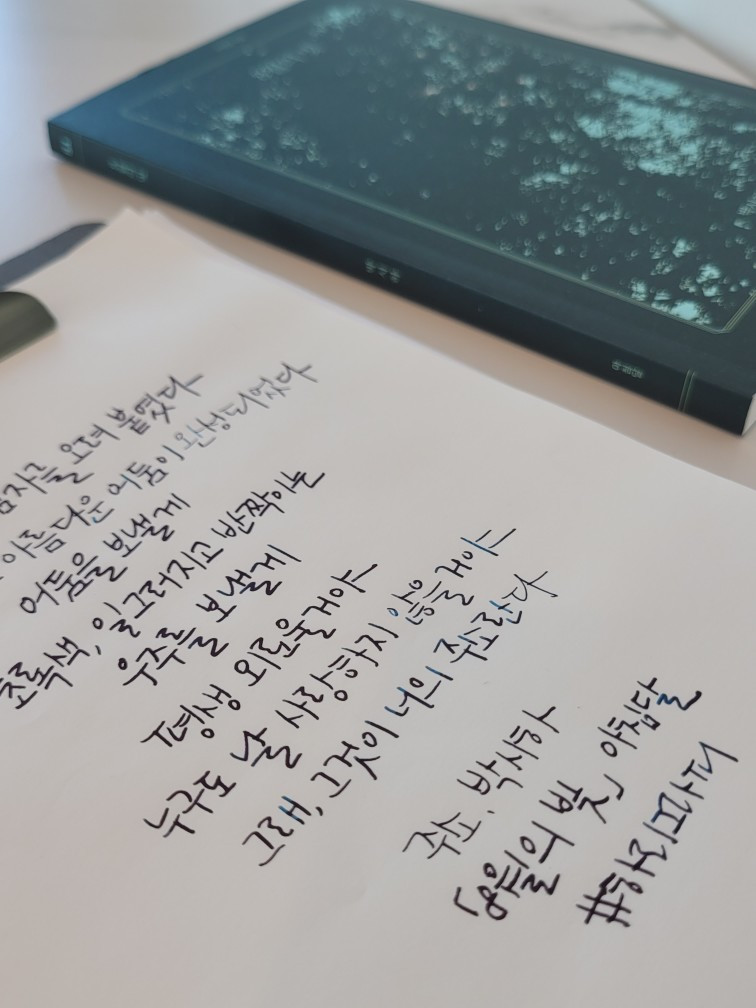 오려 붙였다
아름다운 어둠이 완성되었다
어둠을 보낼게
초록색, 일그러지고 반짝이는
우주를 보낼게
평생 외로울거야
누구도 날 사랑하지 않을거야
그래, 그것이 너의 주소란다
주소. 박시하
「8월의 빛」 아침달
#하리꼬마니